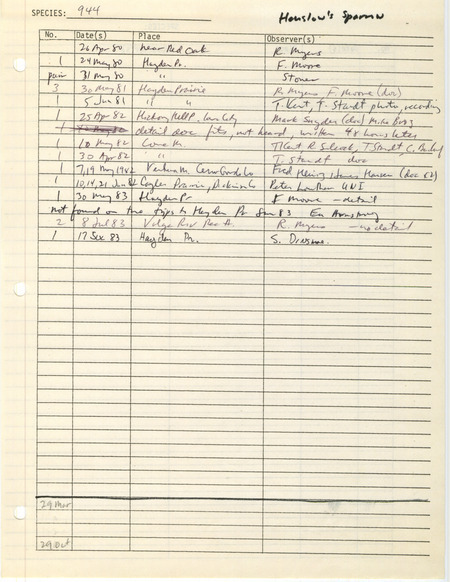 SPECIES: 944 Henslow's Sparrow
No. Date(s) Place Observer(s)
26 Apr 80 near Red Oak R. Myers
1 24 May 80 Hayden Pr. F. Moore
pair 31 May 80 " Stoner
3 30 May 81 Hayden Prairie R Myers F. Moore (doc)
1 5 Jun 81 " " T. Kent, T. Staudt photo, recording
1 25 Apr 82 Hickory Hill P. Mark Snyder (doc)
1 detail doc fits, not heard, written 48 hours later
1 10 May 82 Cone M T Kent T Staudt, C.
1 30 Apr 82 " T. Staudt doc
1 7,19 May 1982 Ventura M. Cerro Gordo Co Fred Hansen (doc 82)
1 10,14,21 Jun 82 Cayler Prairie, Dickinson Co Peter Lowther UNI
1 30 May 83 Hayden Pr F Moore - detail
Not found on two trips to Hayden Pr Jun 83 Armstrong
2 8 Jul 83 Volga Riv Rec A. R. Myers - no detail
1 17 83 Hayden Pr. S. Dinsmore.
29 Mar
29 Oct